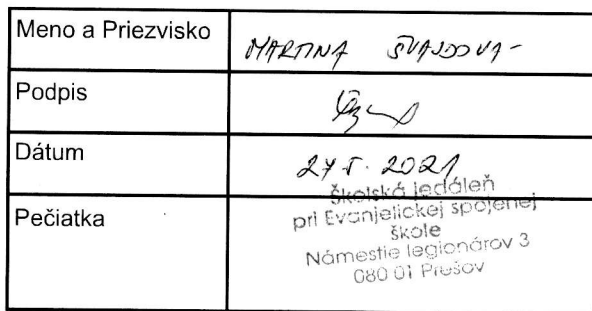 Meno a Priezvisko
MARTINA ŠVAJDOVÁ
Podpis
Dátum
27.5. 2021
Pečiatka
Školská jedáleň
pri Evanjelickej spojenej
škole
Námestie legionárov 3
080 01 Prešov